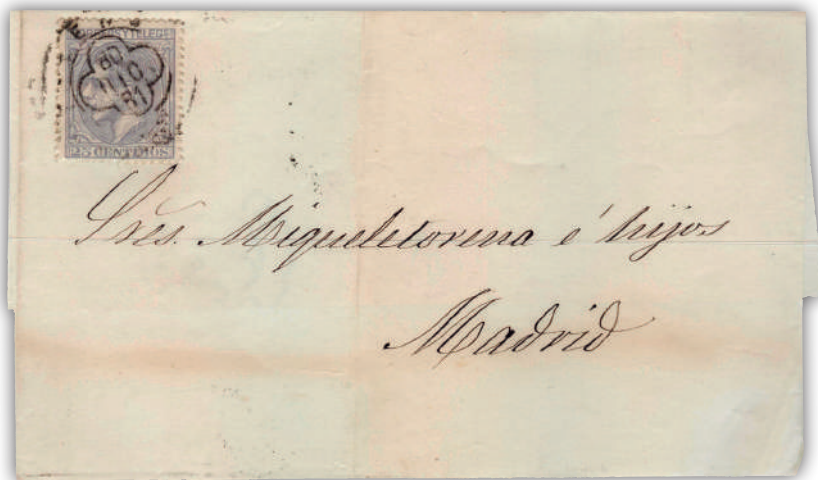 CORREOS Y TELEGS
25 CENTIMOS
Sres. Migueletorena é hijos
Madrid